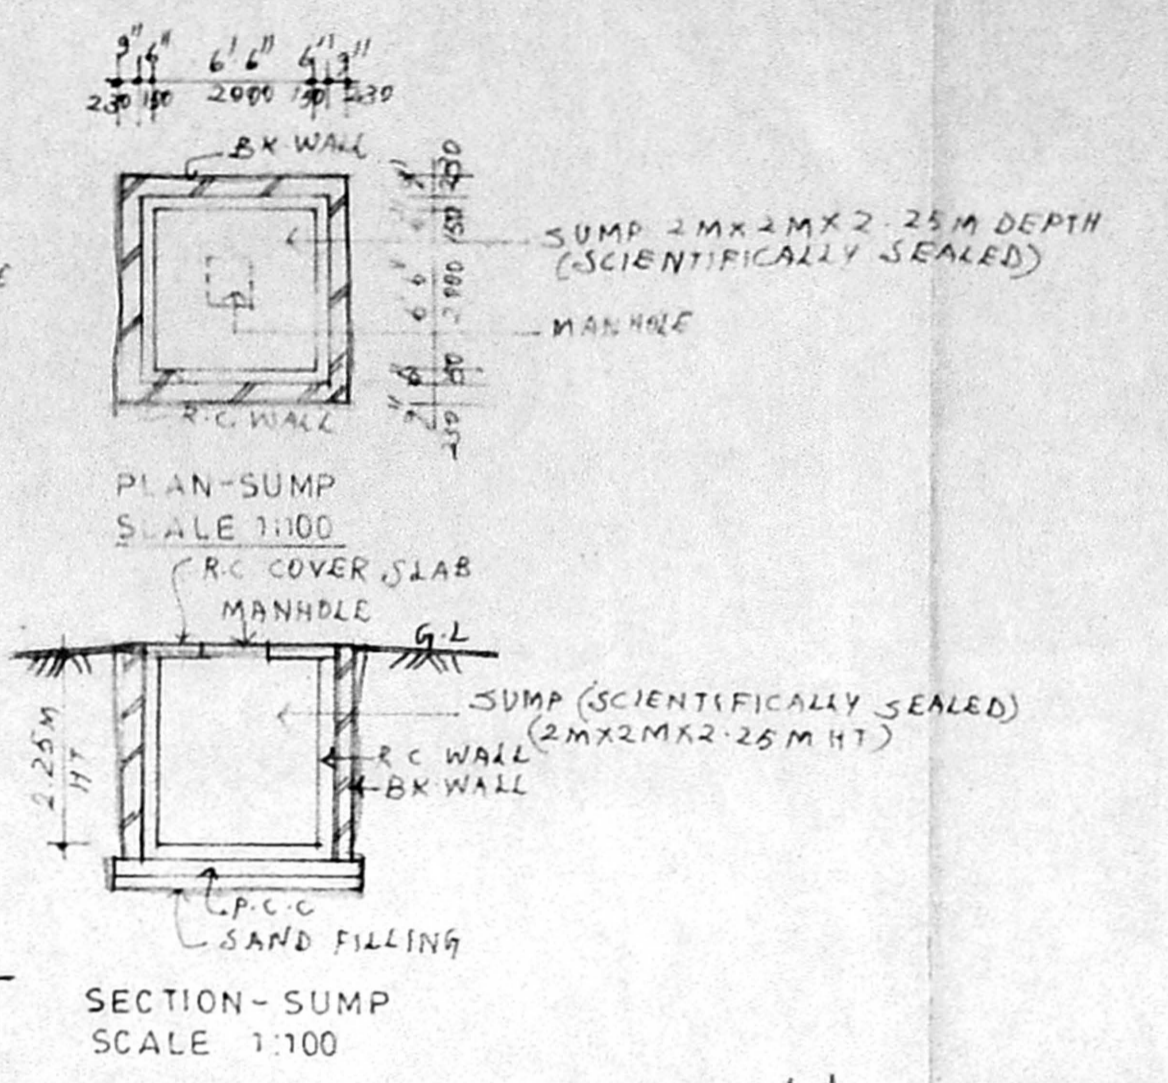 9" 6" 6' 6" 6" 9"
230 150 2000 150 230
BK WALL
9" 230
6" 150
6' 6" 2000
6" 150
9" 230
SUMP 2M X 2M X 2.25M DEPTH
(SCIENTIFICALLY SEALED)
MANHOLE
R.C. WALL
PLAN-SUMP
SCALE 1:100
R.C COVER SLAB
MANHOLE
G.L
SUMP (SCIENTIFICALLY SEALED)
(2MX2MX2.25M HT)
R C WALL
BK WALL
2.25M
HT
P.C.C
SAND FILLING
SECTION-SUMP
SCALE 1:100